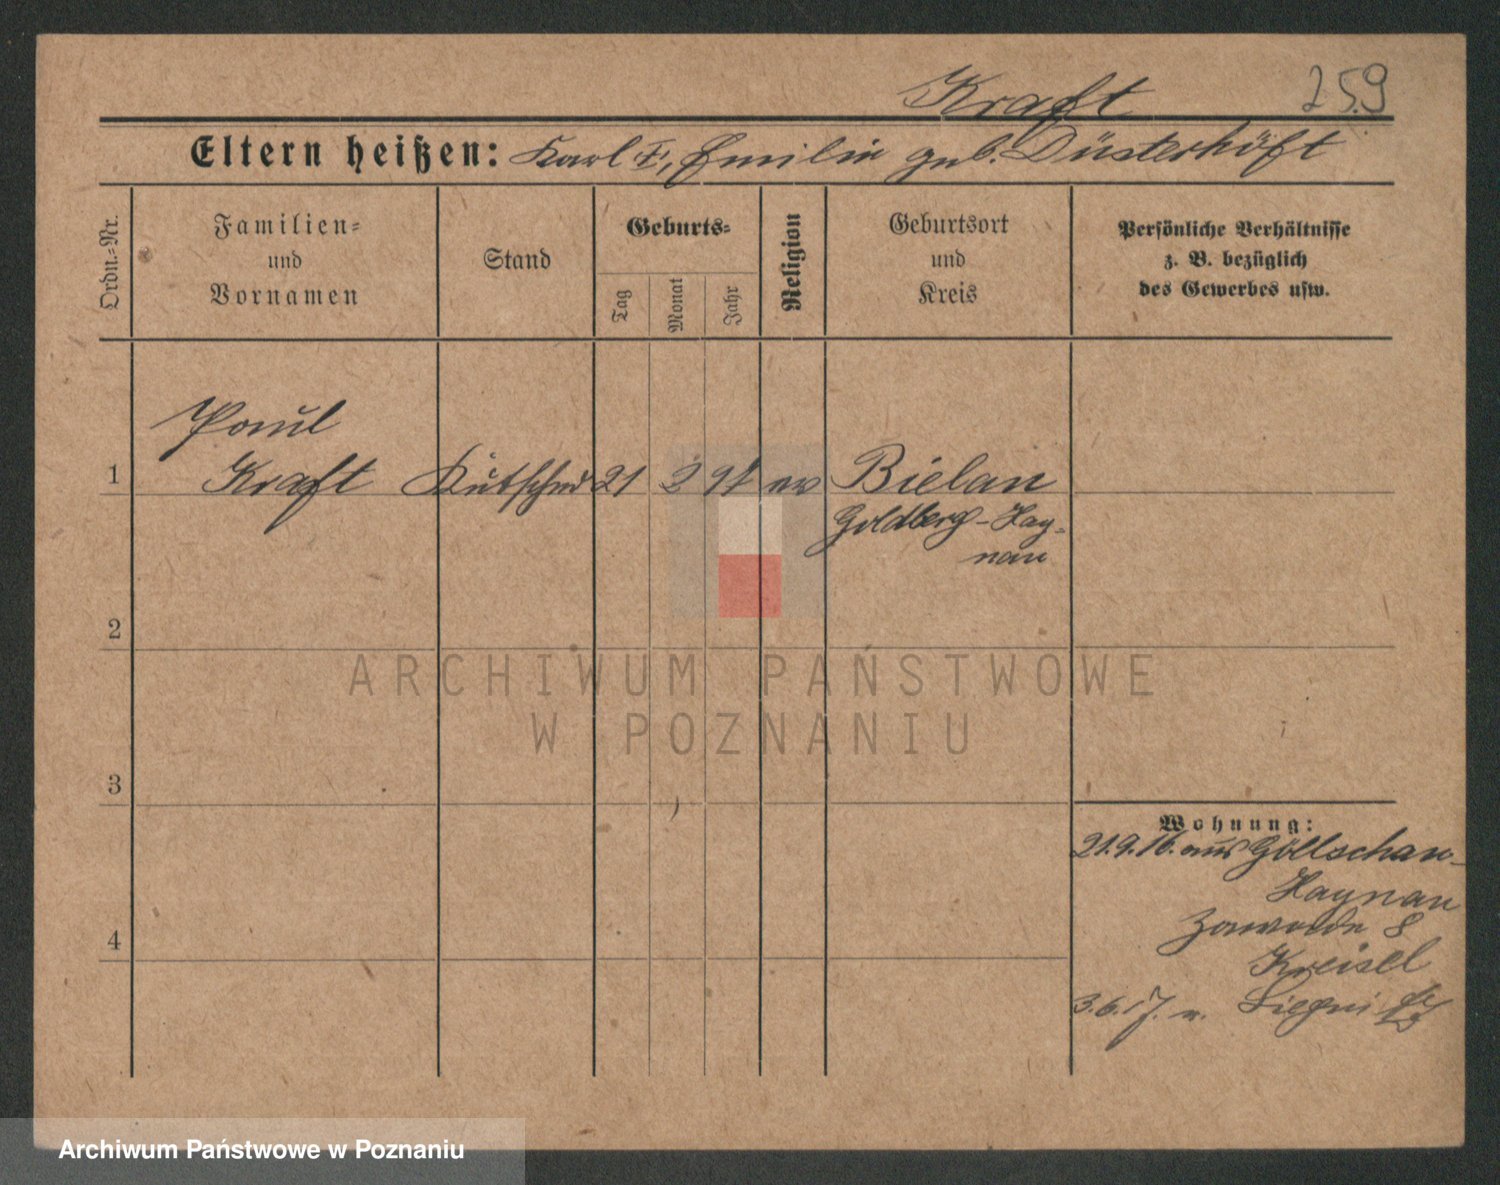 Kraft 259
Eltern heißen: Karl K., Emilie geb. Düsterhöft
Ordn.-Nr.
Familien-
und
Vornamen
Stand
Geburts-
Tag
Monat
Jahr
Religion
Geburtsort
und
Kreis
Persönliche Verhältnisse
z. B. bezüglich
des Gewerbes usw.
Paul
1 Kraft Kutscher 21 2 91 ev Bielau
Goldberg-Hay-
nau
2
3
4
Wohnung:
21.9.16. aus Göllschau-
Haynau
8
Kreisel
3.6.17. n. Liegnitz
ARCHIWUM PAŃSTWOWE
W POZNANIU
Archiwum Państwowe w Poznaniu